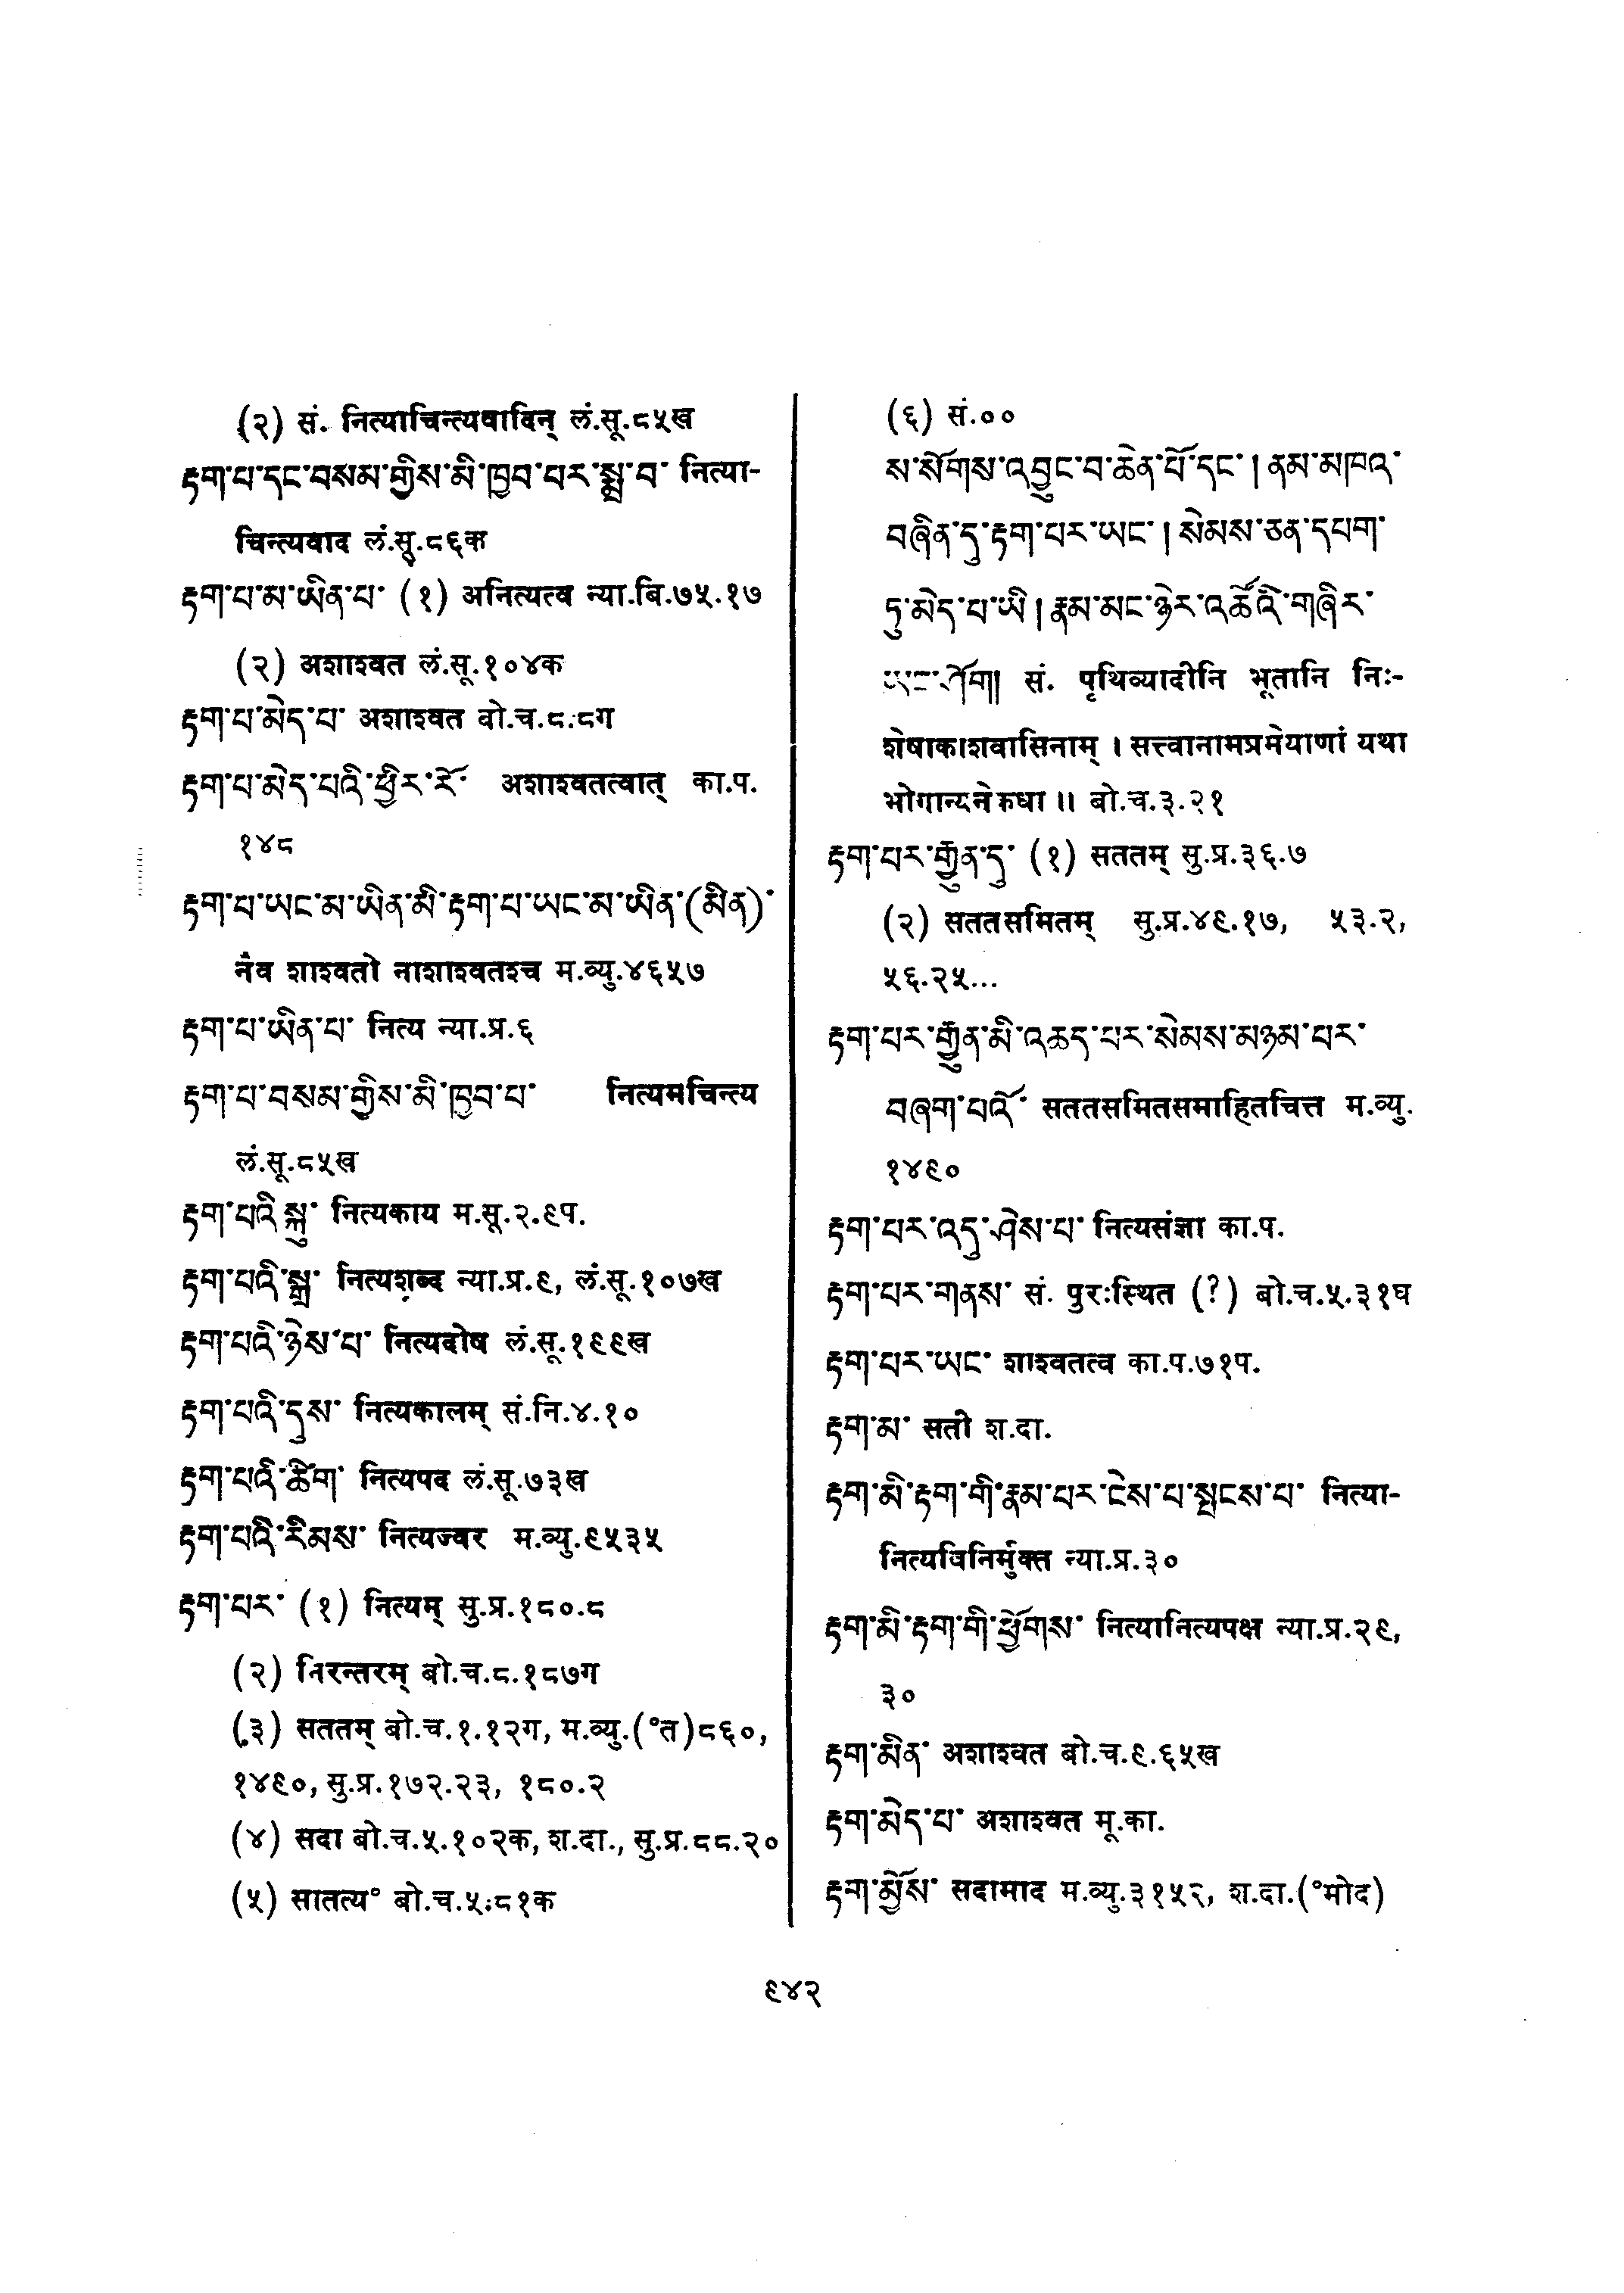 (२) सं. नित्याचिन्त्यवादिन् लं.सू.८५ख
རྟག་པ་དང་བསམ་གྱིས་མི་ཁྱབ་པར་སྨྲ་བ་ नित्या-
चिन्त्यवाद लं.सू.८६क
རྟག་པ་མ་ཡིན་པ་ (१) अनित्यत्व न्या.बि.७५.१७
(२) अशाश्वत लं.सू.१०४क
རྟག་པ་མེད་པ་ अशाश्वत बो.च.८.८ग
རྟག་པ་མེད་པའི་ཕྱིར་རོ་ अशाश्वतत्वात् का.प.
१४८
རྟག་པ་ཡང་མ་ཡིན་མི་རྟག་པ་ཡང་མ་ཡིན་(མིན)་
नैव शाश्वतो नाशाश्वतश्च म.व्यु.४६५७
རྟག་པ་ཡིན་པ་ नित्य न्या.प्र.६
རྟག་པ་བསམ་གྱིས་མི་ཁྱབ་པ་ नित्यमचिन्त्य
लं.सू.८५ख
རྟག་པའི་སྐུ་ नित्यकाय म.सू.२.९प.
རྟག་པའི་སྒྲ་ नित्यशब्द न्या.प्र.९, लं.सू.१०७ख
རྟག་པའི་ཉེས་པ་ नित्यदोष लं.सू.१९९ख
རྟག་པའི་དུས་ नित्यकालम् सं.नि.४.१०
རྟག་པའི་ཚིག་ नित्यपद लं.सू.७३ख
རྟག་པའི་རིམས་ नित्यज्वर म.व्यु.९५३५
རྟག་པར་ (१) नित्यम् सु.प्र.१८०.८
(२) निरन्तरम् बो.च.८.१८७ग
(३) सततम् बो.च.१.१२ग, म.व्यु.(°त)८६०,
१४९०, सु.प्र.१७२.२३, १८०.२
(४) सदा बो.च.५.१०२क, श.दा., सु.प्र.८८.२०
(५) सातत्य° बो.च.५.८१क
(६) सं.००
ས་སོགས་འབྱུང་བ་ཆེན་པོ་དང་། ནམ་མཁའ་
བཞིན་དུ་རྟག་པར་ཡང་། སེམས་ཅན་དཔག་
ཏུ་མེད་པ་ཡི། རྣམ་མང་ཉེར་འཚོའི་གཞིར་
ཤོག།  सं. पृथिव्यादीनि भूतानि निः-
शेषाकाशवासिनाम् । सत्त्वानामप्रमेयाणां यथा
भोगान्यनेकधा ॥ बो.च.३.२१
རྟག་པར་རྒྱུན་དུ་ (१) सततम् सु.प्र.३६.७
(२) सततसमितम् सु.प्र.४९.१७, ५३.२,
५६.२५...
རྟག་པར་རྒྱུན་མི་འཆད་པར་སེམས་མཉམ་པར་
བཞག་པའོ་ सततसमितसमाहितचित्त म.व्यु.
१४९०
རྟག་པར་འདུ་ཤེས་པ་ नित्यसंज्ञा का.प.
རྟག་པར་གནས་ सं. पुरःस्थित (?) बो.च.५.३१घ
རྟག་པར་ཡང་ शाश्वतत्व का.प.७१प.
རྟག་མ་ सती श.दा.
རྟག་མི་རྟག་གི་རྣམ་པར་ངེས་པ་སྤངས་པ་ नित्या-
नित्यविनिर्मुक्त न्या.प्र.३०
རྟག་མི་རྟག་གི་ཕྱོགས་ नित्यानित्यपक्ष न्या.प्र.२९,
३०
རྟག་མིན་ अशाश्वत बो.च.९.६५ख
རྟག་མེད་པ་ अशाश्वत मू.का.
རྟག་མྱོས་ सदामाद म.व्यु.३१५२, श.दा.(°मोद)
९४२